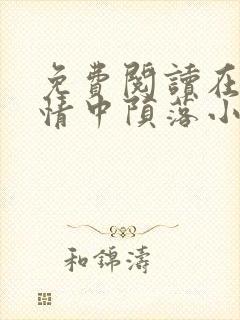 免費閱讀在
情中隕落小
和錦濤